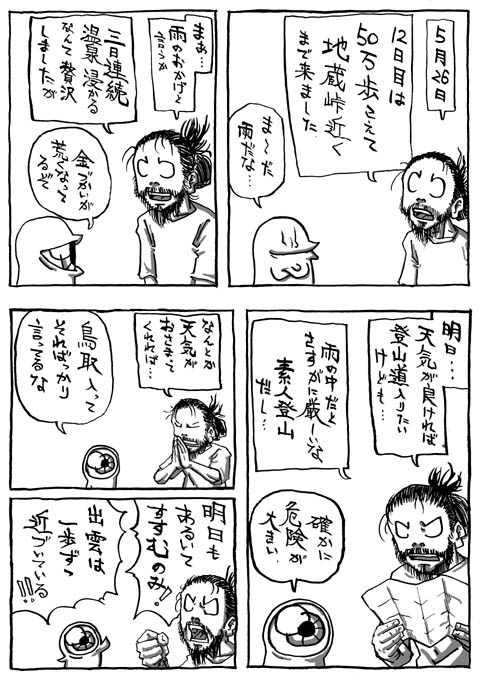 5月26日
12日目は
50万歩こえて
地蔵峠近く
まで来ました
ま〜だ
雨だな…
まぁ…
雨のおかげと
言うか
三日連続
温泉浸かる
なんて贅沢
しましたが
金づかいが
荒くなって
るぞ
明日…
天気が良ければ
登山道入りたい
けども…
雨の中だと
さすがに厳しいな
素人登山
だし…
確かに
危険が
大きい
なんとか
天気が
おさまって
くれれば…
鳥取入って
そればっかり
言ってるな
明日も
あるいて
すすむのみ!
出雲は
一歩ずつ
近づいている
!!!